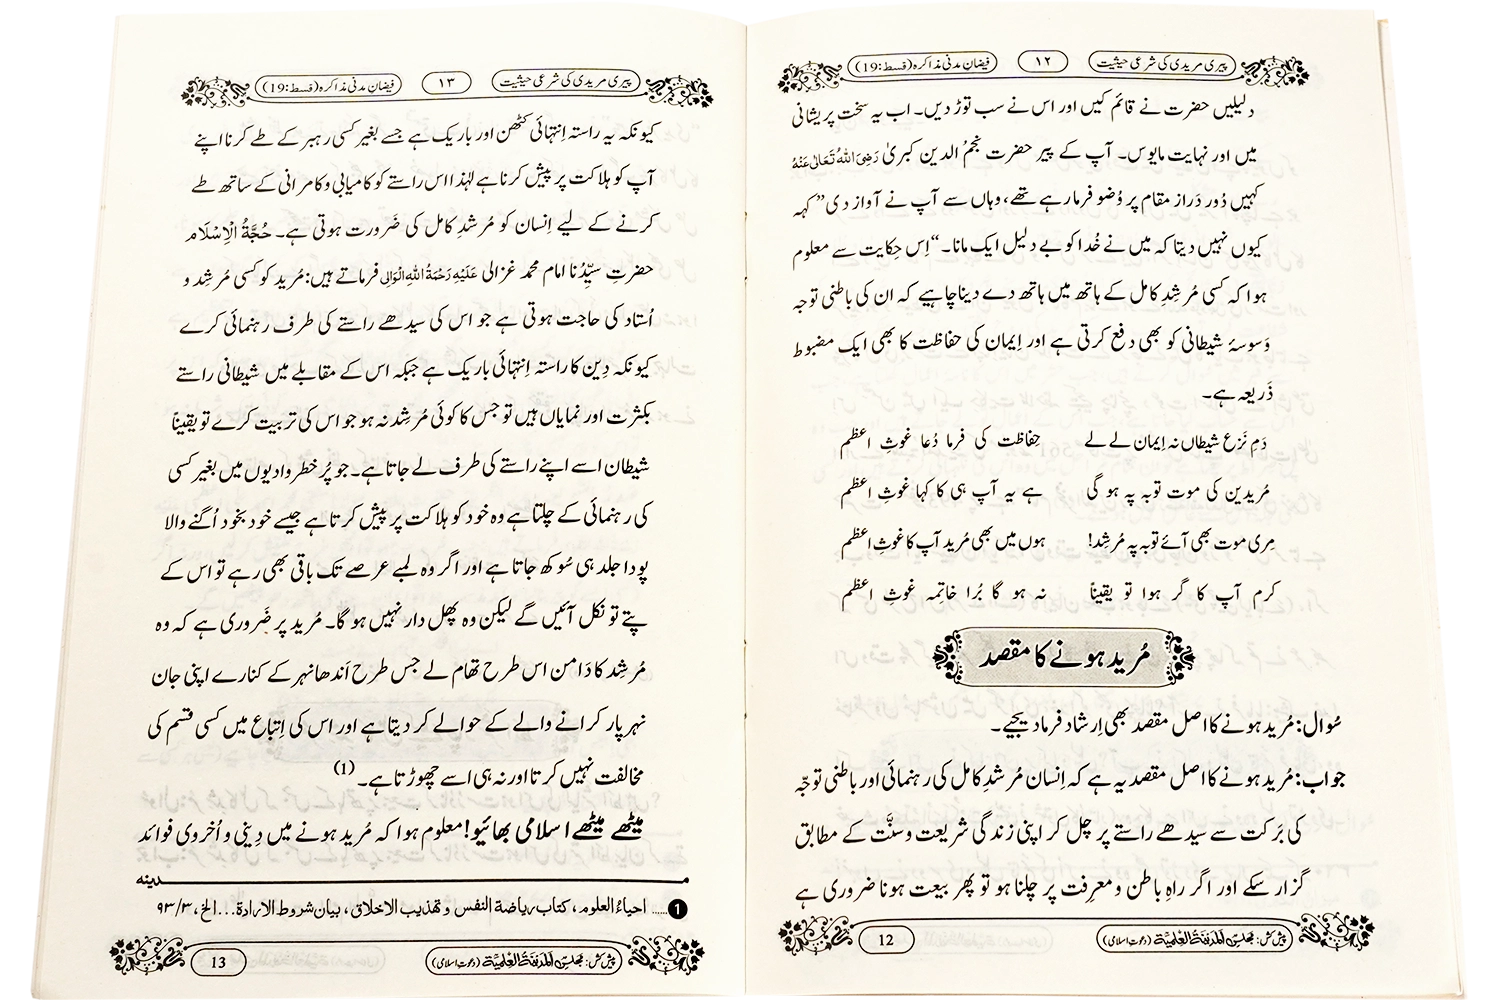 پیری مریدی کی شرعی حیثیت ۱۲ فیضانِ مدنی مذاکرہ (قسط:19)
دلیلیں حضرت نے قائم کیں اور اس نے سب توڑ دیں۔ اب یہ سخت پریشانی
میں اور نہایت مایوس۔ آپ کے پیر حضرت نجمُ الدین کبریٰ رَضِیَ اللّٰہُ تَعَالٰی عَنْہُ
کہیں دُور دَراز مقام پر وُضو فرما رہے تھے، وہاں سے آپ نے آواز دی”کہہ
کیوں نہیں دیتا کہ میں نے خُدا کو بے دلیل ایک مانا۔“اِس حِکایت سے معلوم
ہوا کہ کسی مُرشِدِ کامل کے ہاتھ میں ہاتھ دے دینا چاہیے کہ ان کی باطنی توجہ
وَسوسۂ شیطانی کو بھی دفع کرتی ہے اور اِیمان کی حفاظت کا بھی ایک مضبوط
ذَریعہ ہے۔
دَمِ نَزع شیطاں نہ اِیمان لے لے حِفاظت کی فرما دُعا غوثِ اعظم
مُریدین کی موت توبہ پہ ہو گی ہے یہ آپ ہی کا کہا غوثِ اعظم
مِری موت بھی آئے توبہ پہ مُرشِد! ہوں میں بھی مُرید آپ کا غوثِ اعظم
کرم آپ کا گر ہوا تو یقیناً نہ ہو گا بُرا خاتِمہ غوثِ اعظم
مُرید ہونے کا مقصد
سُوال: مُرید ہونے کا اصل مقصد بھی اِرشاد فرما دیجیے۔
جواب: مُرید ہونے کا اصل مقصد یہ ہے کہ اِنسان مُرشدِ کامل کی رہنمائی اور باطنی توجّہ
کی بَرکت سے سیدھے راستے پر چل کر اپنی زِندگی شریعت و سنَّت کے مطابق
گزار سکے اور اگر راہِ باطن و معرِفت پر چلنا ہو تو پھر بیعت ہونا ضروری ہے
پیش کش: مجلس اَلْمَدِیْنَۃُ الْعِلْمِیَّۃ (دعوتِ اسلامی) 12
پیری مریدی کی شرعی حیثیت ۱۳ فیضانِ مدنی مذاکرہ (قسط:19)
کیونکہ یہ راستہ اِنتہائی کٹھن اور باریک ہے جسے بغیر کسی رہبر کے طے کرنا اپنے
آپ کو ہلاکت پر پیش کرنا ہے لہٰذا اس راستے کو کامیابی و کامرانی کے ساتھ طے
کرنے کے لیے اِنسان کو مُرشدِ کامل کی ضَرورت ہوتی ہے۔ حُجَّۃُ الْاِسْلَام
حضرتِ سیِّدُنا امام محمد غزالی عَلَیْہِ رَحْمَۃُ اللّٰہِ الْوَالِی فرماتے ہیں: مُرید کو کسی مُرشِد و
اُستاد کی حاجت ہوتی ہے جو اس کی سیدھے راستے کی طرف رہنمائی کرے
کیونکہ دِین کا راستہ اِنتہائی باریک ہے جبکہ اس کے مقابلے میں شیطانی راستے
بکثرت اور نمایاں ہیں تو جس کا کوئی مُرشِد نہ ہو جو اس کی تربیت کرے تو یقیناً
شیطان اسے اپنے راستے کی طرف لے جاتا ہے۔ جو پُر خطر وادیوں میں بغیر کسی
کی رہنمائی کے چلتا ہے وہ خود کو ہلاکت پر پیش کرتا ہے جیسے خود بخود اُگنے والا
پودا جلد ہی سُوکھ جاتا ہے اور اگر وہ لمبے عرصے تک باقی بھی رہے تو اس کے
پتے تو نکل آئیں گے لیکن وہ پھل دار نہیں ہو گا۔ مُرید پر ضَروری ہے کہ وہ
مُرشِد کا دَامن اس طرح تھام لے جس طرح اَندھا نہر کے کنارے اپنی جان
نہر پار کرانے والے کے حوالے کر دیتا ہے اور اس کی اِتباع میں کسی قسم کی
مخالفت نہیں کرتا اور نہ ہی اسے چھوڑتا ہے۔ (1)
میٹھے میٹھے اسلامی بھائیو! معلوم ہوا کہ مُرید ہونے میں دِینی و اُخروی فوائد
مـدینه
1 ..... احیاءُ العلوم، کتاب ریاضة النفس و تهذیب الاخلاق، بیان شروط الارادة...الخ، ۹۳/۳
پیش کش: مجلس اَلْمَدِیْنَۃُ الْعِلْمِیَّۃ (دعوتِ اسلامی) 13